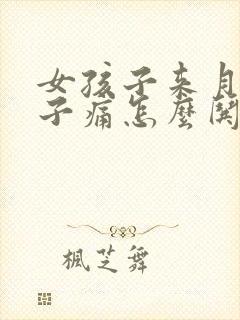 女孩子来月
子痛怎麼
楓芝舞